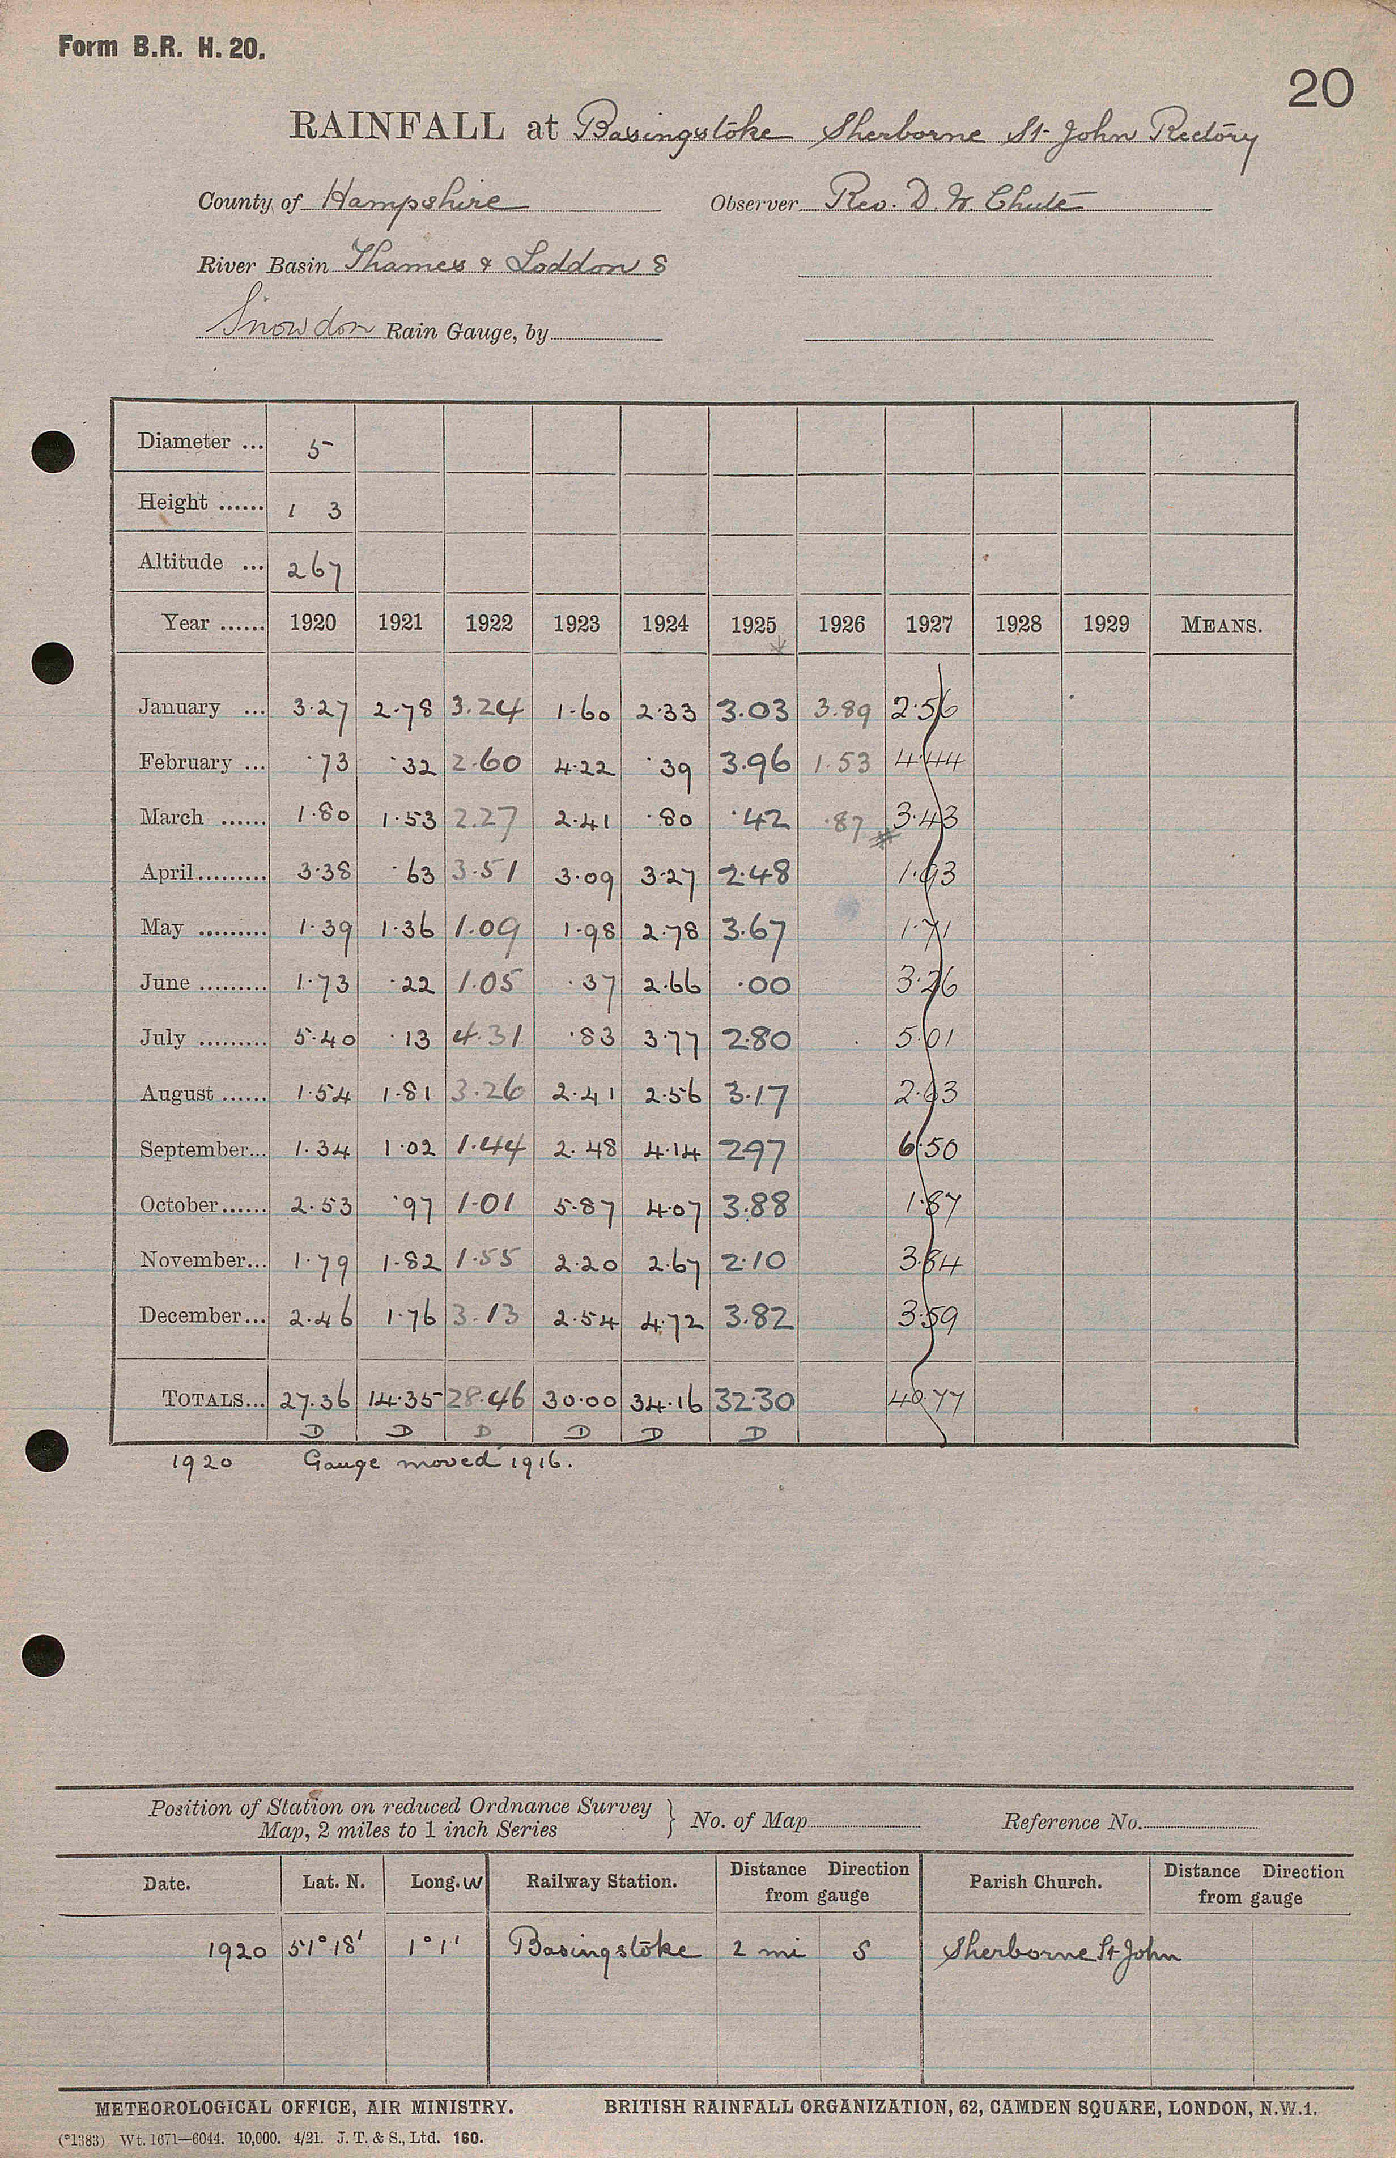 Form B.R. H. 20.
20
RAINFALL at Basingstoke Sherborne St John Rectory
County of Hampshire Observer Rev. D. W. Chute
River Basin Thames & Loddon 8
Snowdon Rain Gauge, by
Diameter ... 5
Height ...... 1 3
Altitude ... 267
Year ...... 1920 1921 1922 1923 1924 1925 1926 1927 1928 1929 MEANS.
January ... 3.27 2.78 3.24 1.60 2.33 3.03 3.89 2.56
February ... .73 .32 2.60 4.22 .39 3.96 1.53 4.44
March ...... 1.80 1.53 2.27 2.41 .80 .42 .87 # 3.43
April ......... 3.38 .63 3.51 3.09 3.27 2.48 1.93
May ......... 1.39 1.36 1.09 1.98 2.78 3.67 1.71
June ......... 1.73 .22 1.05 .37 2.66 .00 3.26
July ......... 5.40 .13 4.31 .83 3.77 2.80 5.01
August ...... 1.54 1.81 3.26 2.41 2.56 3.17 2.63
September... 1.34 1.02 1.44 2.48 4.14 297 6.50
October ...... 2.53 .97 1.01 5.87 4.07 3.88 1.87
November... 1.79 1.82 1.55 2.20 2.67 2.10 3.84
December... 2.46 1.76 3.13 2.54 4.72 3.82 3.59
TOTALS... 27.36 14.35 28.46 30.00 34.16 32.30 40.77
D D D D D D
1920 Gauge moved 1916.
Position of Station on reduced Ordnance Survey } No. of Map Reference No.
Map, 2 miles to 1 inch Series
Date. Lat. N. Long. W Railway Station. Distance Direction from gauge Parish Church. Distance Direction from gauge
1920 51° 18' 1° 1' Basingstoke 2 mi S Sherborne St John
METEOROLOGICAL OFFICE, AIR MINISTRY. BRITISH RAINFALL ORGANIZATION, 62, CAMDEN SQUARE, LONDON, N.W.1.
(*1383) Wt. 1671—6044. 10,000. 4/21. J. T. & S., Ltd. 160.